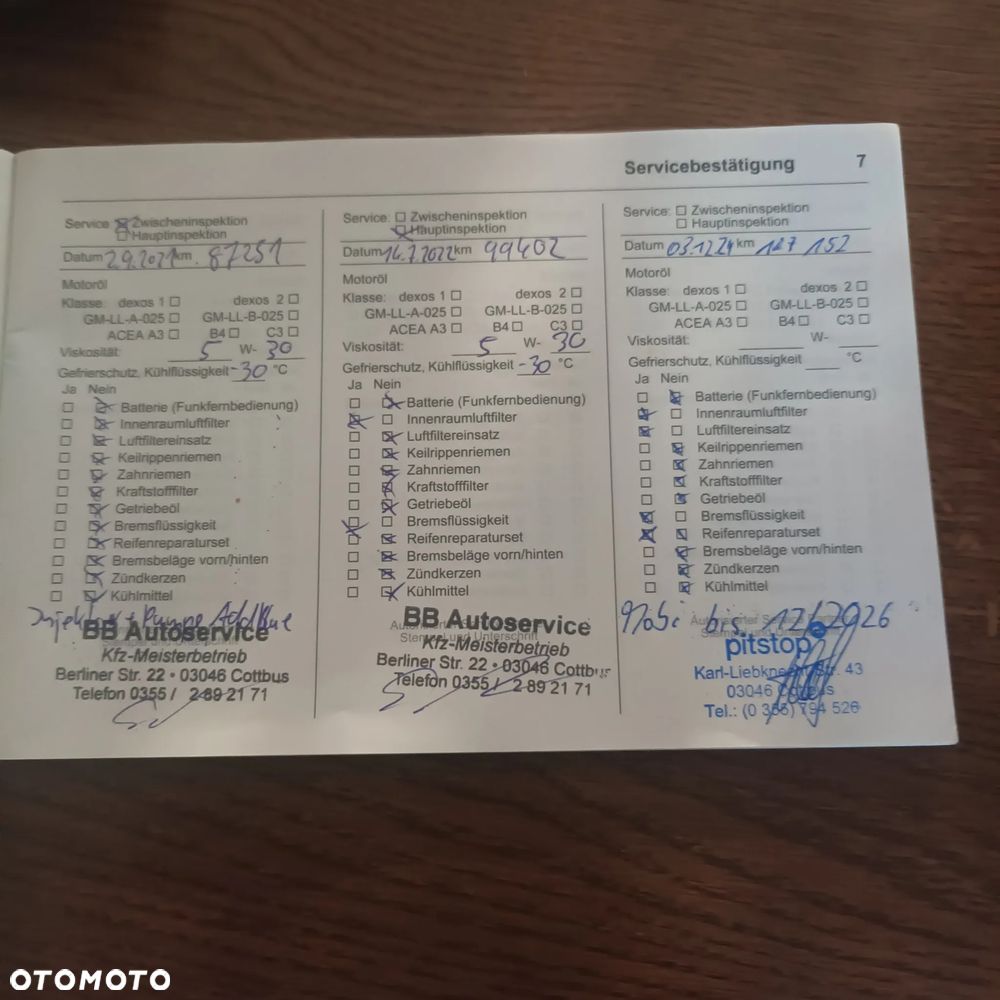 Servicebestätigung 7
Service: Zwischeninspektion
Hauptinspektion
Datum 2.9.2021 km 87251
Motoröl
Klasse: dexos 1 dexos 2
GM-LL-A-025 GM-LL-B-025
ACEA A3 B4 C3
Viskosität: 5 W- 30
Gefrierschutz, Kühlflüssigkeit -30 °C
Ja Nein
Batterie (Funkfernbedienung)
Innenraumluftfilter
Luftfiltereinsatz
Keilrippenriemen
Zahnriemen
Kraftstofffilter
Getriebeöl
Bremsflüssigkeit
Reifenreparaturset
Bremsbeläge vorn/hinten
Zündkerzen
Kühlmittel
Injektor + Pumpe AdBlue
BB Autoservice
Kfz-Meisterbetrieb
Berliner Str. 22 • 03046 Cottbus
Telefon 0355 / 2 89 21 71
Service: Zwischeninspektion
Hauptinspektion
Datum 14.7.2022 km 99402
Motoröl
Klasse: dexos 1 dexos 2
GM-LL-A-025 GM-LL-B-025
ACEA A3 B4 C3
Viskosität: 5 W- 30
Gefrierschutz, Kühlflüssigkeit -30 °C
Ja Nein
Batterie (Funkfernbedienung)
Innenraumluftfilter
Luftfiltereinsatz
Keilrippenriemen
Zahnriemen
Kraftstofffilter
Getriebeöl
Bremsflüssigkeit
Reifenreparaturset
Bremsbeläge vorn/hinten
Zündkerzen
Kühlmittel
BB Autoservice
Stempel und Unterschrift
Kfz-Meisterbetrieb
Berliner Str. 22 • 03046 Cottbus
Telefon 0355 / 2 89 21 71
Service: Zwischeninspektion
Hauptinspektion
Datum 03.12.24 km 127 152
Motoröl
Klasse: dexos 1 dexos 2
GM-LL-A-025 GM-LL-B-025
ACEA A3 B4 C3
Viskosität: W-
Gefrierschutz, Kühlflüssigkeit °C
Ja Nein
Batterie (Funkfernbedienung)
Innenraumluftfilter
Luftfiltereinsatz
Keilrippenriemen
Zahnriemen
Kraftstofffilter
Getriebeöl
Bremsflüssigkeit
Reifenreparaturset
Bremsbeläge vorn/hinten
Zündkerzen
Kühlmittel
bis 12/2026
pitstop
Karl-Liebknecht Str. 43
03046 Cottbus
Tel.: (0 355) 794 526
OTOMOTO